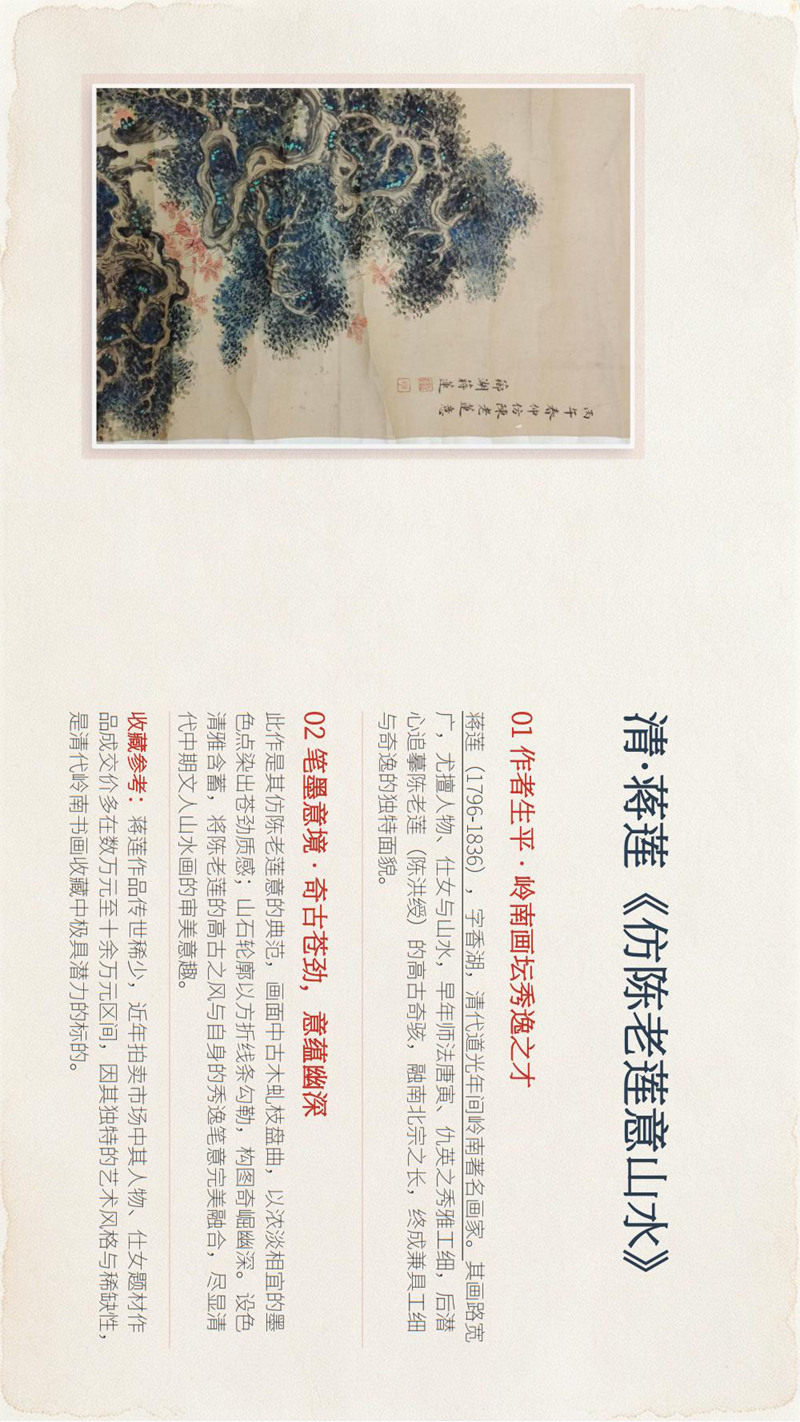 清·蒋莲《仿陈老莲意山水》
01 作者生平 · 岭南画坛秀逸之才
蒋莲（1796-1836），字香湖，清代道光年间岭南著名画家。其画路宽
广，尤擅人物、仕女与山水，早年师法唐寅、仇英之秀雅工细，后潜
心追摹陈老莲（陈洪绶）的高古奇骇，融南北宗之长，终成兼具工细
与奇逸的独特面貌。
02 笔墨意境 · 奇古苍劲，意蕴幽深
此作是其仿陈老莲意的典范，画面中古木虬枝盘曲，以浓淡相宜的墨
色点染出苍劲质感；山石轮廓以方折线条勾勒，构图奇崛幽深。设色
清雅含蓄，将陈老莲的高古之风与自身的秀逸笔意完美融合，尽显清
代中期文人山水画的审美意趣。
收藏参考：蒋莲作品传世稀少，近年拍卖市场中其人物、仕女题材作
品成交价多在数万元至十余万元区间，因其独特的艺术风格与稀缺性，
是清代岭南书画收藏中极具潜力的标的。
丙午春仲仿陳老蓮意
湖蔣蓮